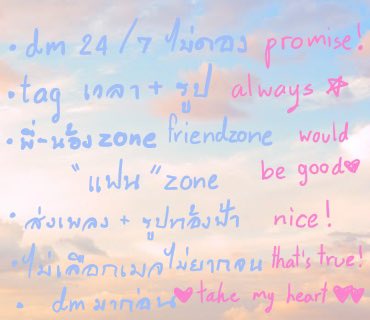 • dm 24/7 ไม่ดอง promise!
• tag เวลา + รูป always
• พี่-น้อง zone friendzone would
"แฟน" zone be good
• ส่งเพลง + รูปท้องฟ้า nice!
• ไม่เลือกเมล ไม่ยากจน that's true!
• dm มาก่อน take my heart